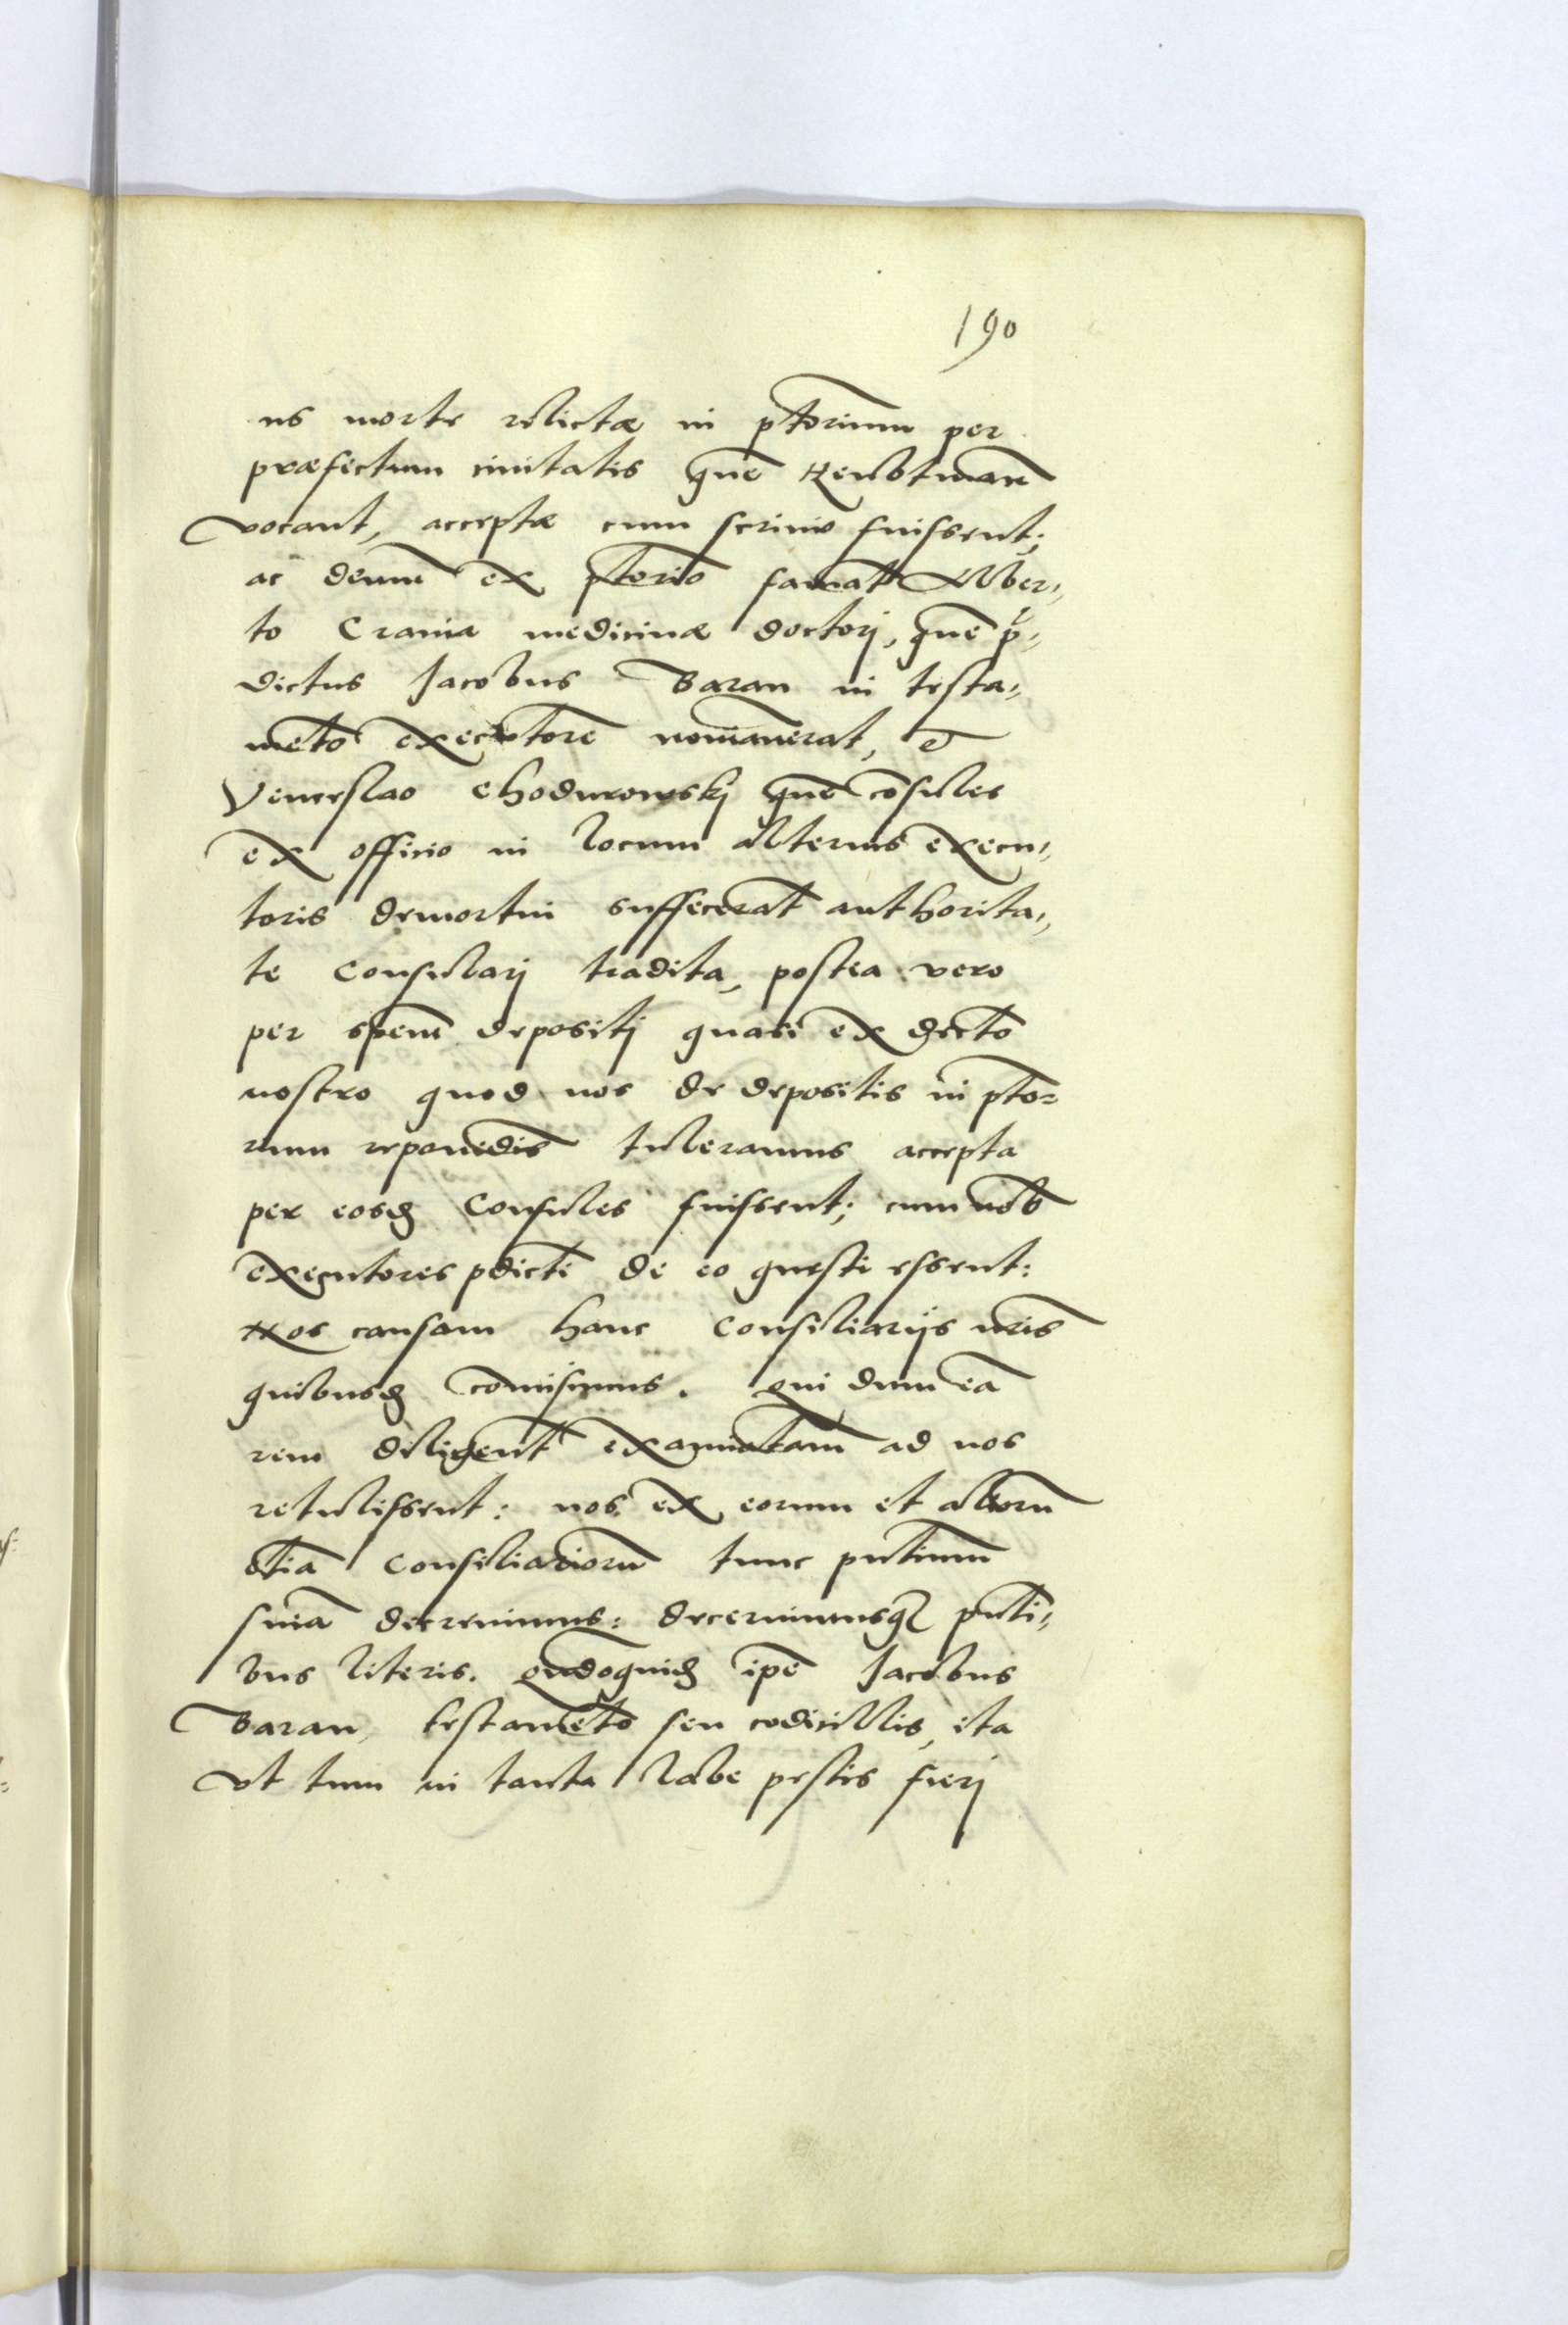 190
us morte relictæ in ptorium per
præfectum civitatis quē Heubtmann
vocant, acceptæ cum scrinio fuissent;
ac demū ex ptorio famato Alber„
to Crania medicinæ doctorj, quē p„
dictus Jacobus Baran in testa„
mēto executorē nominaverat, et
Venceslao Chodurowskj quē cōsules
ex officio in locum alterius execu„
toris demortui suffecerāt authorita„
te Consularj tradita, postea vero
per spem depositj quasi ex decreto
nostro quod nos de depositis in pto„
rium reponēdis tuleramus accepta
per eosdē Consules fuissent; cum nob
executores pdicti de eo questi essent:
Nos causam hanc Consiliarijs nris
quibusdā comisimus. qui dum eā
rem diligent examinatam ad nos
retulissent: nos ex eorum et aliorū
etiā Consiliariorū tunc pntium
sniā decrevimus: decernimusqȝ pnti„
bus literis. quādoquidē ipe Jacobus
Baran, testamēto seu codicillis, ita
ut tum in tanta labe pestis fierj